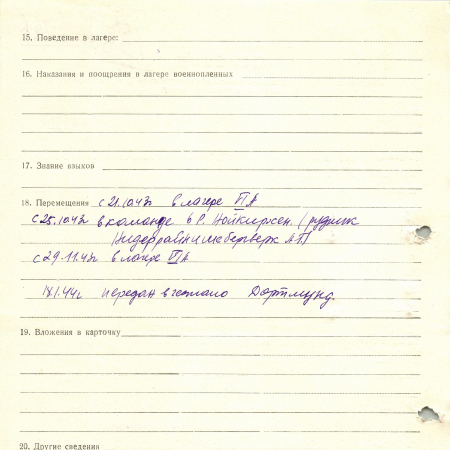 15. Поведение в лагере:
16. Наказания и поощрения в лагере военнопленных
17. Знание языков
18. Перемещения с 21.10.43г в лагере VIА
с 25.10.43г в команде 6 Р. Нойкирхен. (рудник
с 29.11.43г в лагере VIА
передан в гестапо Дортмунд.
19. Вложения в карточку
20. Другие сведения